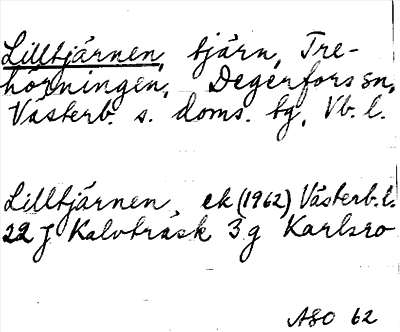 Lilltjärnen, tjärn, Tre-
hörningen, Degerfors sn,
Västerb. s. doms. tg, Vb. l.
Lilltjärnen, ek (1962) Västerb. l.
22 J Kalvträsk 3 g Karlsro
ASO 62